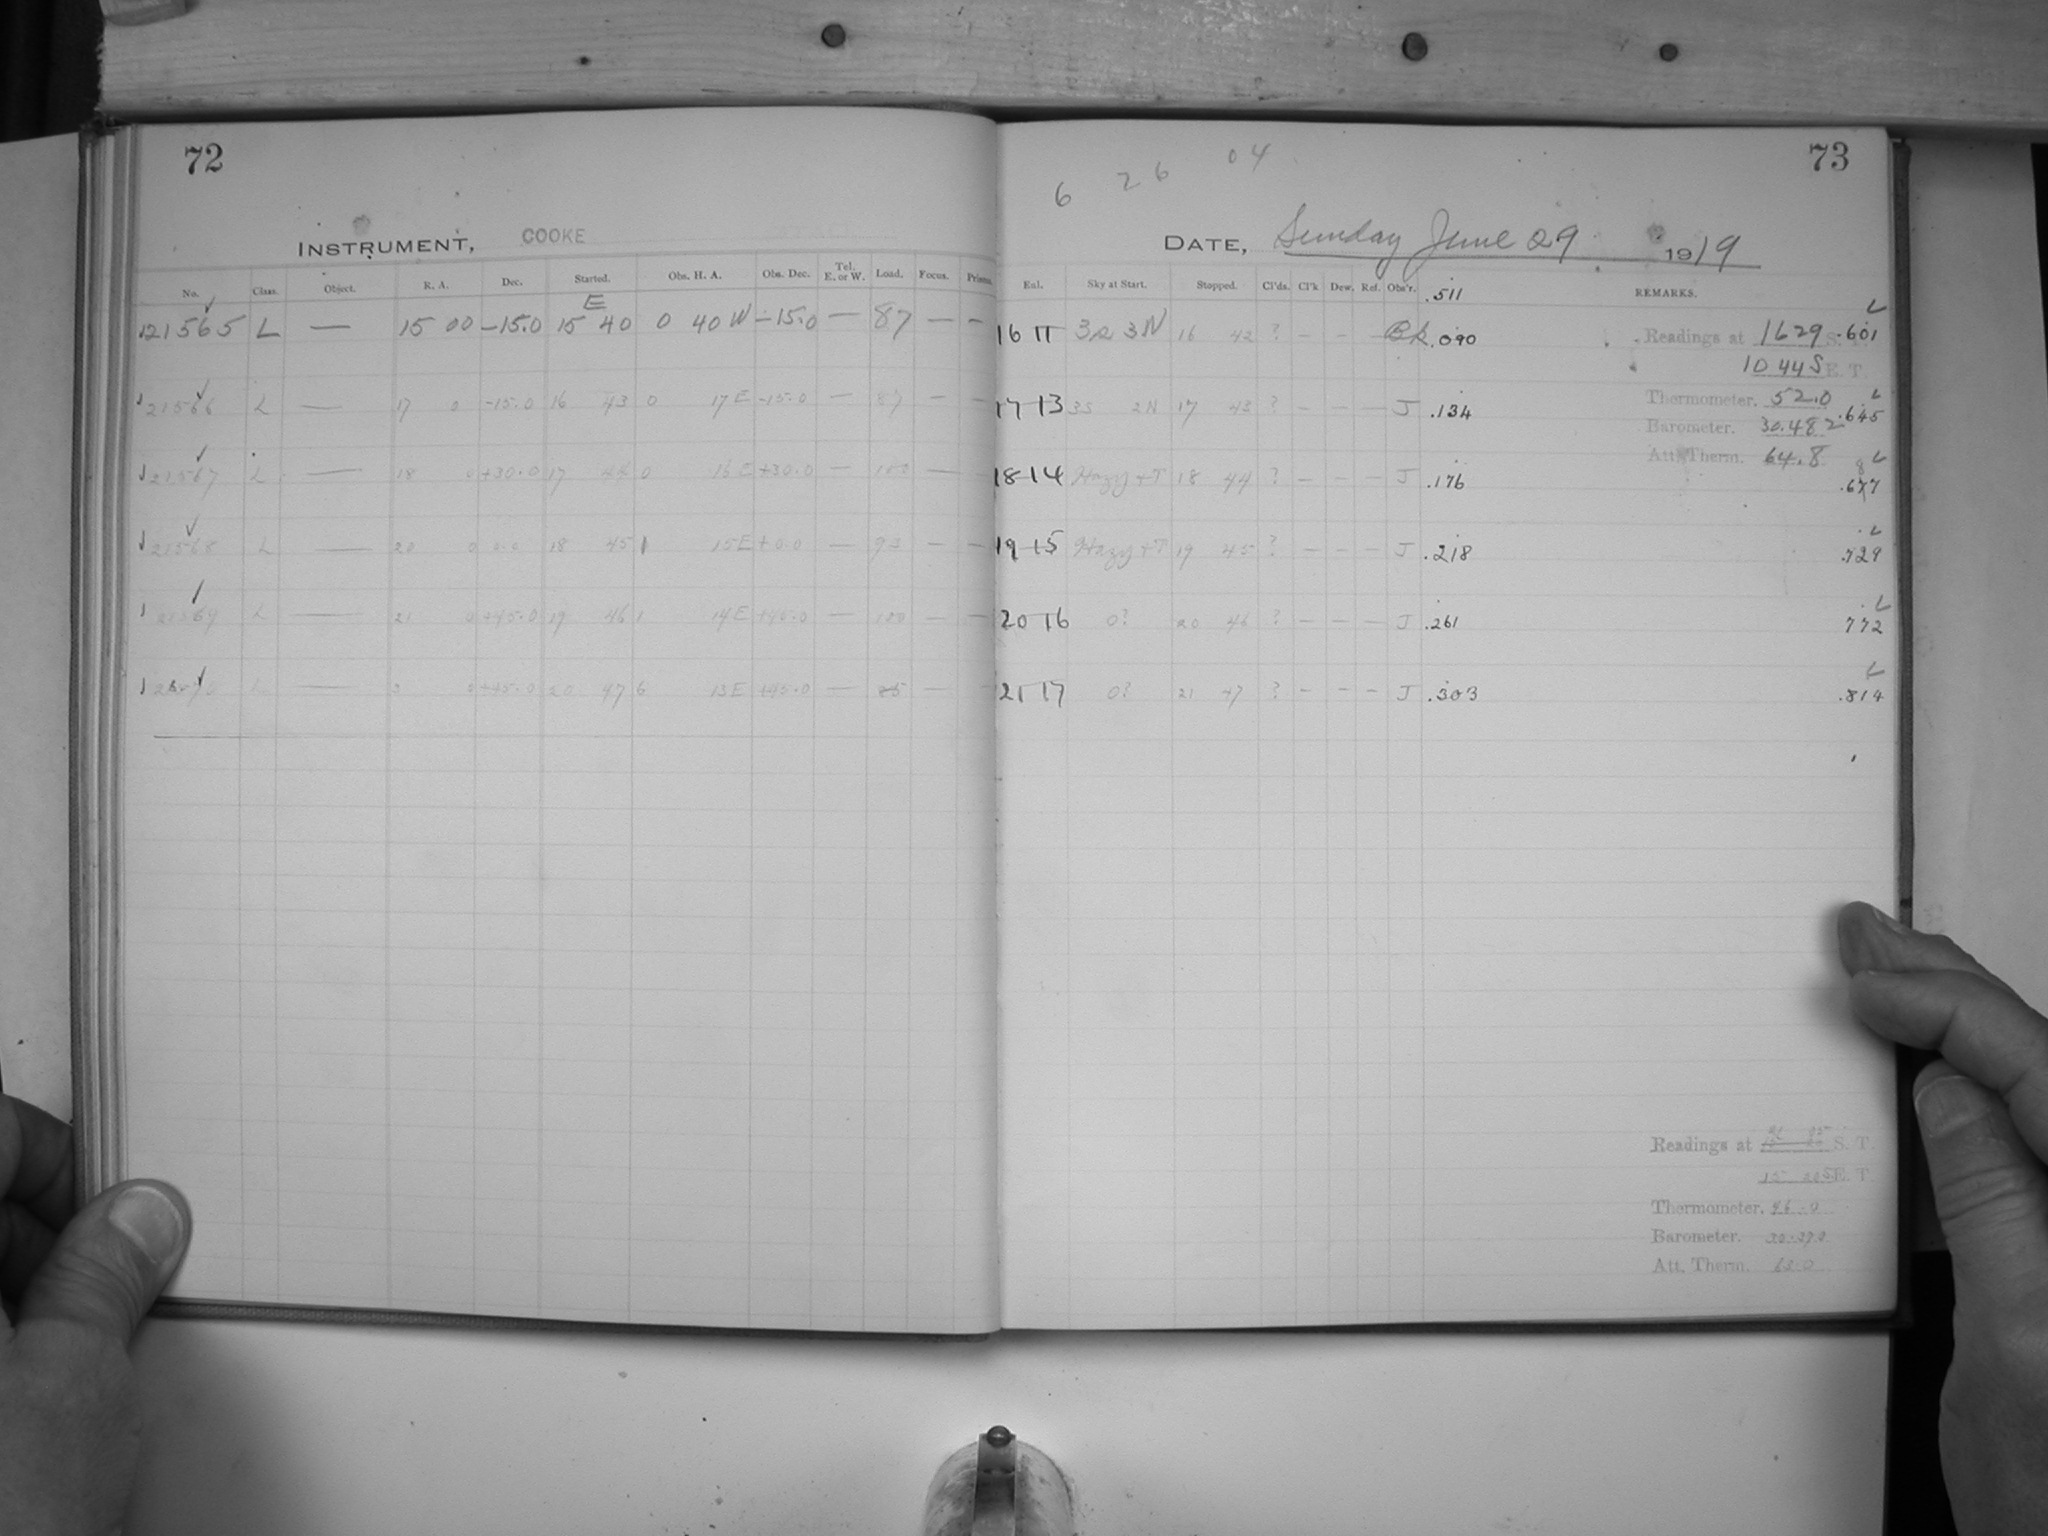 72
INSTRUMENT, COOKE
No. Class. Object. R. A. Dec. Started. Obs. H. A. Obs. Dec. Tel. E. or W. Load. Focus.
E
21565 L — 15 00 -15.0 15 40 0 40 W -15.0 — 87 — —
21566 L — 17 0 -15.0 16 43 0 17 E -15.0 — 87 — —
21567 L — 18 0 +30.0 17 44 0 16 E +30.0 — —
21568 L — 20 0 0.0 18 45 1 15 E +0.0 — — —
21569 L — 21 0 +45.0 19 46 1 14 E +45.0 — — —
L — 0 +45.0 20 47 13 E +45.0 — —
73
6 26 04
DATE, Sunday June 29 1919
Exl. Sky at Start. Stopped. Cl'ds. Cl'k Dew. Ref. Obs'r. .511 REMARKS.
16 11 3N 16 42 ? — — — Bk .090
17 13 3S 2N 17 43 ? — — — J .134
18 14 Hazy + T 18 44 ? — — — J .176
19 15 Hazy + T 19 45 ? — — — J .218
20 16 0? 20 46 ? — — — J .261
21 17 0? 21 47 ? — — — J .303
L
Readings at 16 29 S. T. .601
10 44 S E. T.
Thermometer. 52.0 L
.645
Barometer. 30.482
Att. Therm. 64.8 L
L
.729
L
.772
L
.814
Readings at S. T.
15 20 S E. T.
Thermometer. 46.0
Barometer.
Att. Therm. 63.0